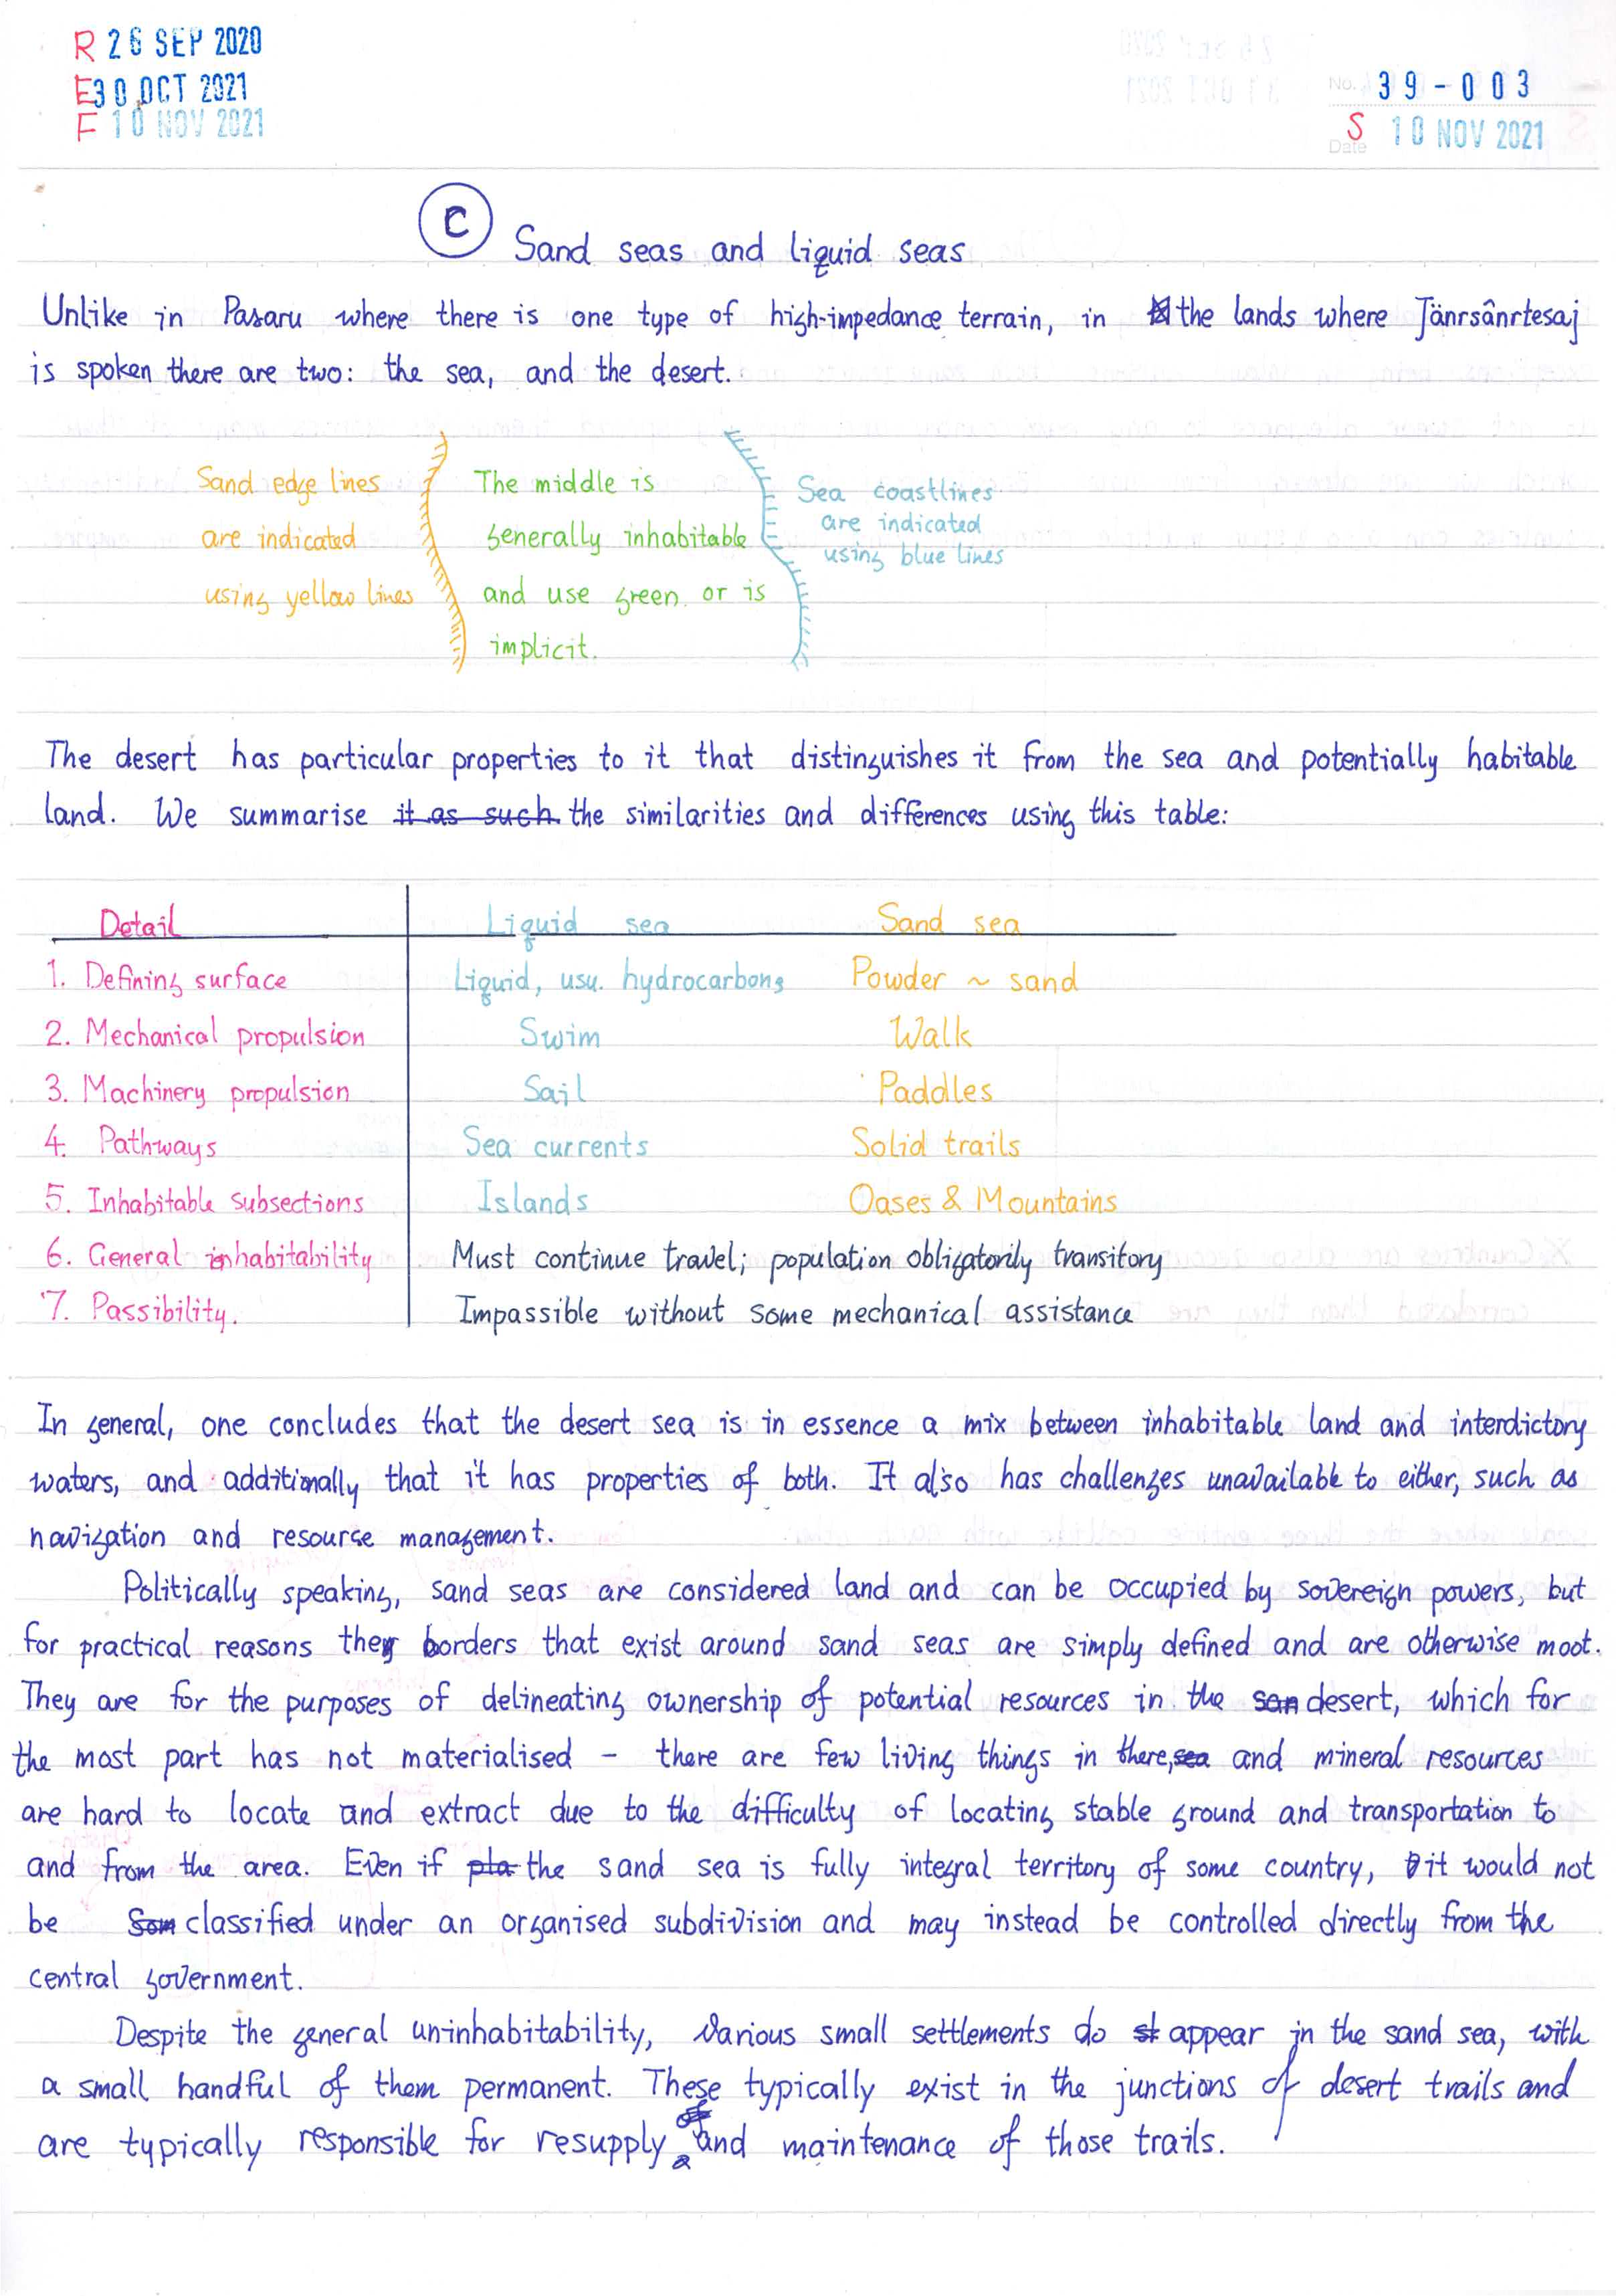 R 26 SEP 2020
E 30 OCT 2021
F 10 NOV 2021
No. 39-003
S 10 NOV 2021
Date
C Sand seas and liquid seas
Unlike in Pasaru where there is one type of high-impedance terrain, in the lands where Jänrsânrtesaj
is spoken there are two: the sea, and the desert.
Sand edge lines
are indicated
using yellow lines
The middle is
generally inhabitable
and use green or is
implicit.
Sea coastlines
are indicated
using blue lines
The desert has particular properties to it that distinguishes it from the sea and potentially habitable
land. We summarise it as such the similarities and differences using this table:
Detail Liquid sea Sand sea
1. Defining surface Liquid, usu. hydrocarbons Powder ~ sand
2. Mechanical propulsion Swim Walk
3. Machinery propulsion Sail Paddles
4. Pathways Sea currents Solid trails
5. Inhabitable subsections Islands Oases & Mountains
6. General inhabitability Must continue travel; population obligatorily transitory
7. Passibility. Impassible without some mechanical assistance
In general, one concludes that the desert sea is in essence a mix between inhabitable land and interdictory
waters, and additionally that it has properties of both. It also has challenges unavailable to either, such as
navigation and resourse management.
Politically speaking, sand seas are considered land and can be occupied by sovereign powers, but
for practical reasons they borders that exist around sand seas are simply defined and are otherwise moot.
They are for the purposes of delineating ownership of potential resources in the san desert, which for
the most part has not materialised - there are few living things in there, sea and mineral resources
are hard to locate and extract due to the difficulty of locating stable ground and transportation to
and from the area. Even if pla the sand sea is fully integral territory of some country, it would not
be Som classified under an organised subdivision and may instead be controlled directly from the
central government.
Despite the general uninhabitability, various small settlements do st appear in the sand sea, with
a small handful of them permanent. These typically exist in the junctions of desert trails and
are typically responsible for resupply and maintenance of those trails.